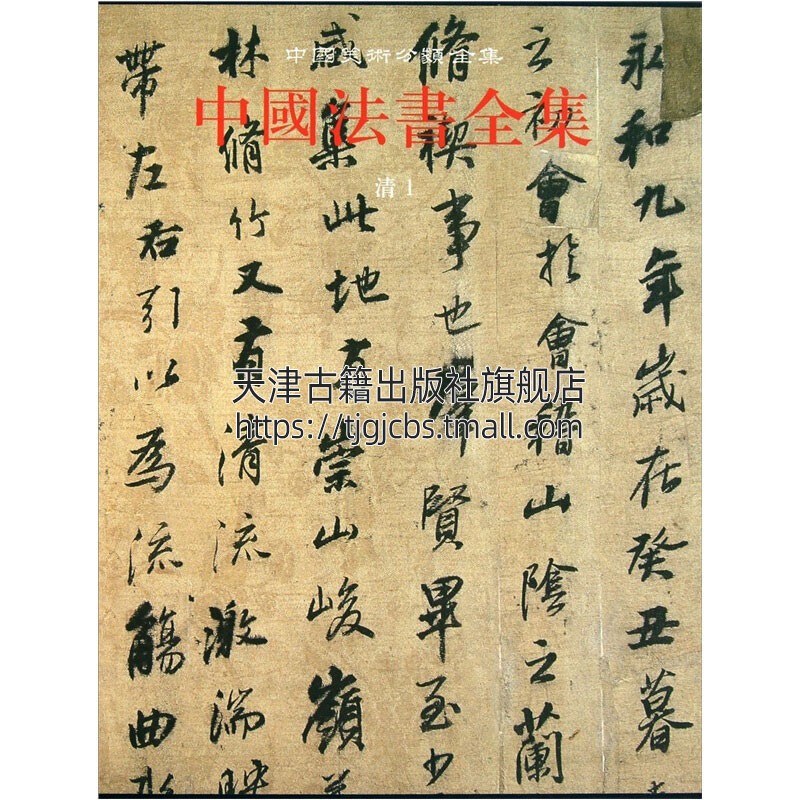 中國美術分類全集
中國法書全集
清1
天津古籍出版社旗舰店
https://tjgjcbs.tmall.com
永和九年歲在癸丑暮
之初會於會稽山陰之蘭
脩禊事也羣賢畢至少
咸集此地有崇山峻嶺
林脩竹又有清流激湍映
帶左右引以為流觴曲水